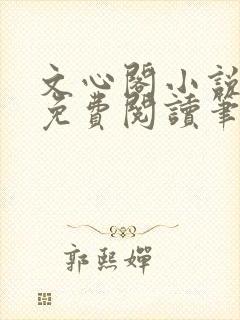 文心閣小說
免費閱讀筆
郭熙嬋